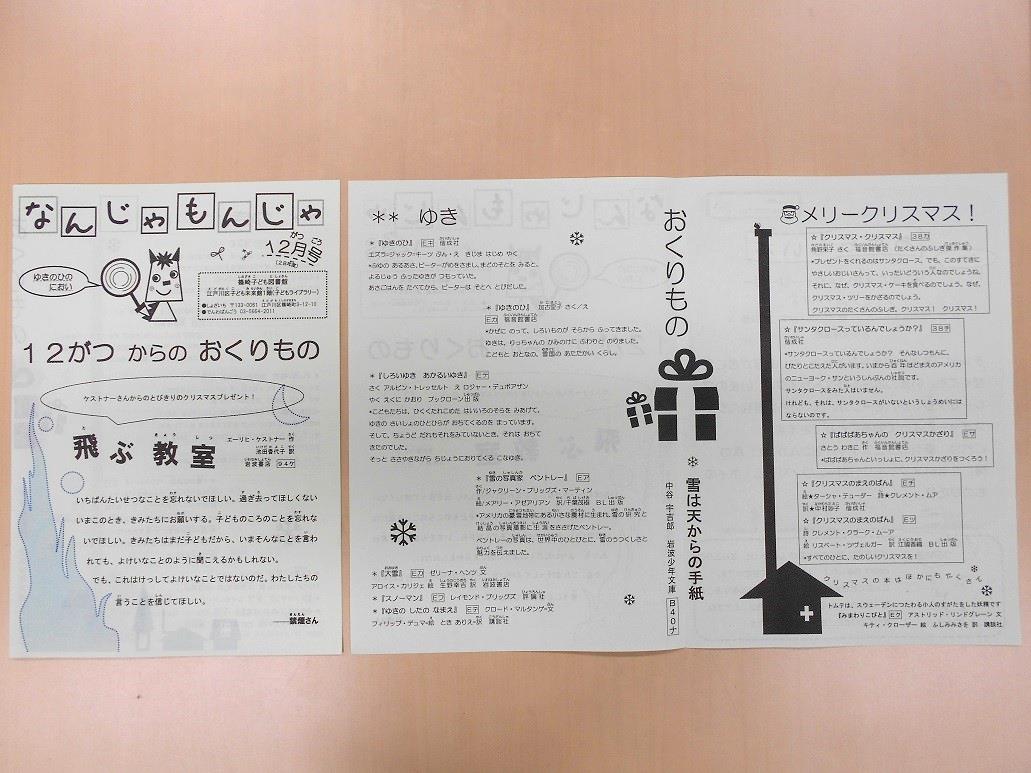 なんじゃもんじゃ
12月号
ゆきのひの
におい
篠崎子ども図書館
江戸川区子ども未来館1階(子どもライブラリー)
●じゅうしょ 〒133-0061 江戸川区篠崎町3-12-10
●でんわばんごう 03-5664-2011
12がつ からの おくりもの
ケストナーさんからのとびきりのクリスマスプレゼント!
飛ぶ教室
エーリヒ・ケストナー 作
池田香代子 訳
岩波書店 94ケ
いちばんたいせつなことを忘れないでほしい。過ぎ去ってほしくない
いまこのとき、きみたちにお願いする。子どものころのことを忘れな
いでほしい。きみたちはまだ子どもだから、いまそんなことを言わ
れても、よけいなことのように聞こえるかもしれない。
でも、これはけっしてよけいなことではないのだ。わたしたちの
言うことを信じてほしい。
――禁煙さん
** ゆき
*『ゆきのひ』 Eキ 偕成社
エズラ=ジャック=キーツ ぶん・え きじま はじめ やく
*ふゆの あるあさ、ピーターがめをさまし、まどのそとを みると、
よるじゅう ふったゆきが つもっていた。
あさごはんを たべてから、ピーターは そとへ とびだした。
*『ゆきのひ』 加古里子 さく/え
Eカ 福音館書店
*かぜに のって、しろいものが そらから ふってきました。
ゆきは、りっちゃんの かみのけに ふわりと のりました。
こどもと おとなの、雪国の あたたかい くらし。
*『しろいゆき あかるいゆき』 Eテ
さく アルビン・トレッセルト え ロジャー・デュボアザン
やく えくに かおり ブックローン出版
*こどもたちは、ひくくたれこめた はいいろのそらを みあげて、
ゆきの さいしょのひとひらが おちてくるのを まっています。
そして、ちょうど だれもそれをみていないとき、それは おちて
きたのでした。
そっと ささやきながら ちじょうにおりてくる こなゆき。
*『雪の写真家 ベントレー』 Eア
作/ジャクリーン・ブリッグズ・マーティン
絵/メアリー・アゼアリアン 訳/千葉茂樹 BL出版
*アメリカの豪雪地帯にある小さな農村に生まれ、雪の研究と
結晶の写真撮影に生涯をささげたベントレー。
ベントレーの写真は、世界中のひとびとに、雪のうつくしさと
魅力を伝えました。
*『大雪』 Eカ ゼリーナ・ヘンツ 文
アロイス・カリジェ 絵 生野幸吉 訳 岩波書店
*『スノーマン』 Eフ レイモンド・ブリッグズ 評論社
*『ゆきの したの なまえ』 Eテ クロード・マルタンゲ・文
フィリップ・デュマ・絵 とき ありえ・訳 講談社
おくりもの
雪は天からの手紙
中谷 宇吉郎 岩波少年文庫 B40ナ
メリークリスマス!
☆『クリスマス・クリスマス』 38カ
角野栄子 さく 福音館書店 (たくさんのふしぎ傑作集)
*プレゼントをくれるのはサンタクロース。でも、このすてきに
やさしいおじいさんって、いったいどういう人なのでしょうね。
それに、なぜ、クリスマス・ケーキを食べるのでしょう。なぜ、
クリスマス・ツリーをかざるのでしょう。
クリスマスのたくさんのふしぎ。クリスマス! クリスマス!
☆『サンタクロースっているんでしょうか?』 38チ
偕成社
*サンタクロースっているんでしょうか? そんなしつもんに、
ぴたりとこたえた人がいます。いまから百年ほどまえのアメリカ
のニューヨーク・サンというしんぶんの社説です。
サンタクロースをみた人はいません。
けれども、それは、サンタクロースがいないというしょうめいには
ならないのです。
☆『ばばばあちゃんの クリスマスかざり』 Eサ
さとう わきこ 作 福音館書店
*ばばばあちゃんといっしょに、クリスマスかざりをつくろう!
☆『クリスマスのまえのばん』 Eチ
絵★ターシャ・テューダー 詩★クレメント・ムア
訳★中村妙子 偕成社
☆『クリスマスのまえのばん』 Eツ
詩 クレメント・クラーク・ムーア
絵 リスベート・ツヴェルガー 訳 江國香織 BL出版
*すべてのひとに、たのしいクリスマスを!
クリスマスの本はほかにもたくさん
トムテは、スウェーデンにつたわる小人のすがたをした妖精です
『みまわりこびと』 Eク アストリッド・リンドグレーン 文
キティ・クローザー 絵 ふしみみさを 訳 講談社